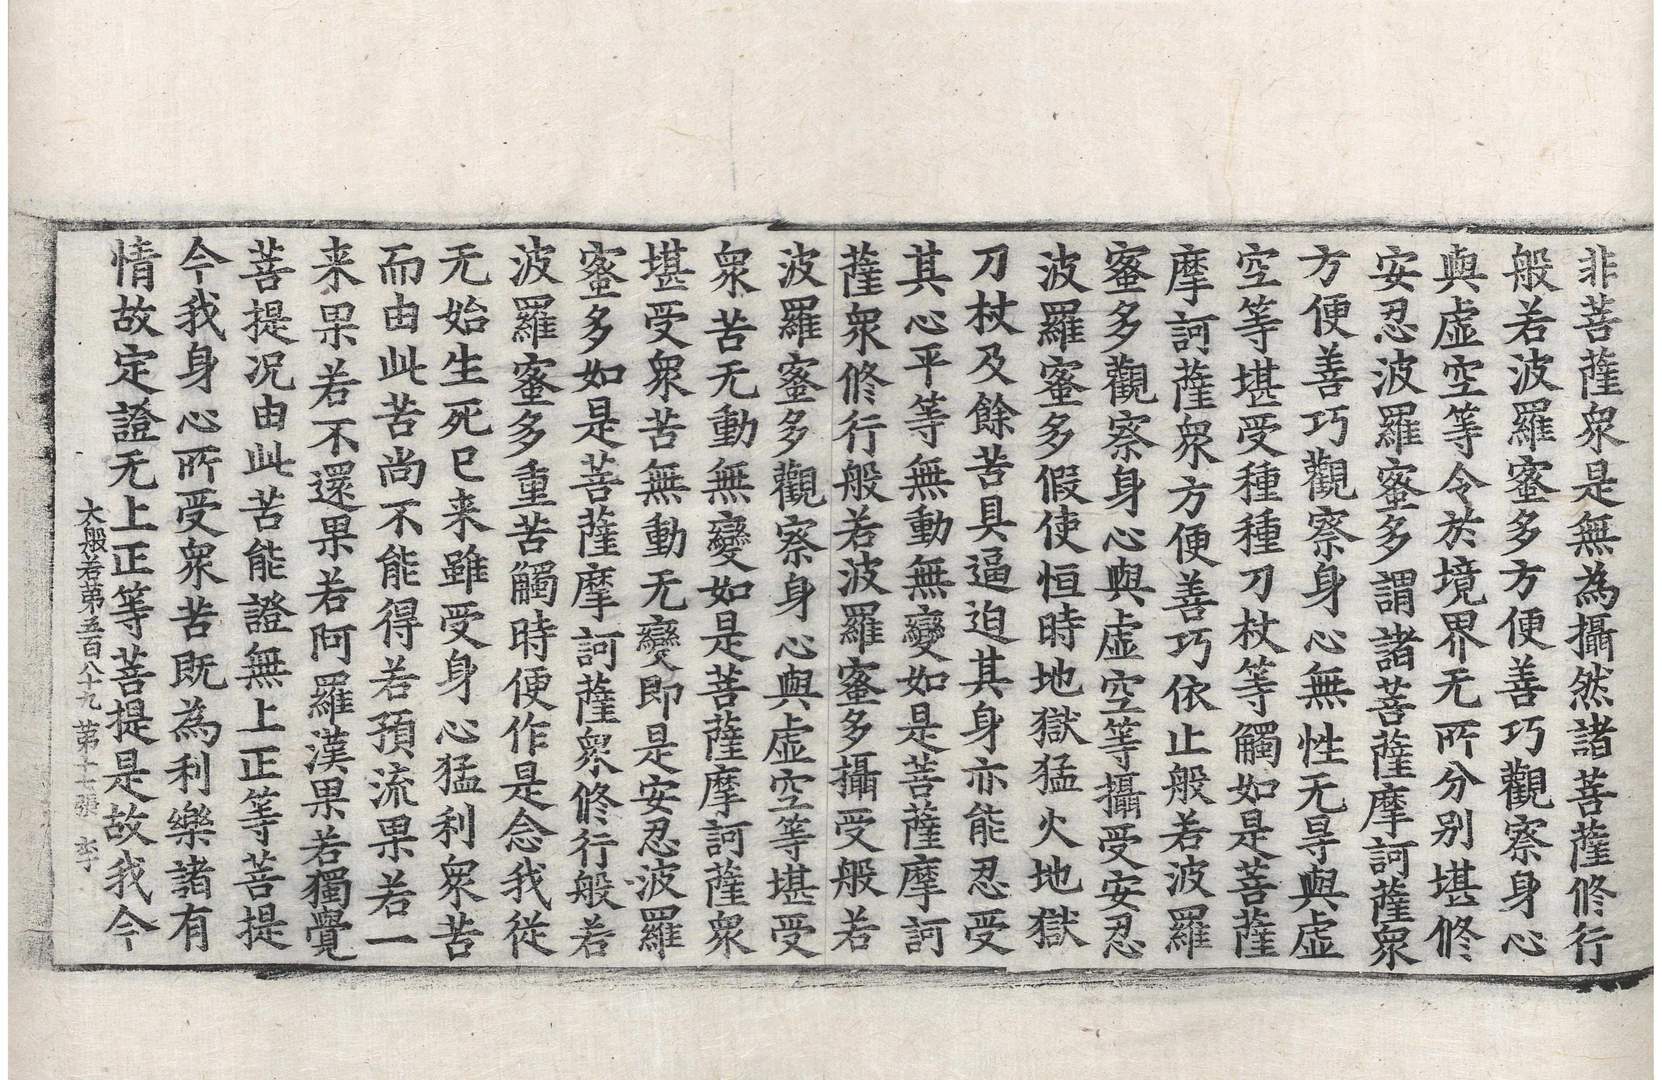 非菩薩衆是無為攝然諸菩薩修行
般若波羅蜜多方便善巧觀察身心
與虛空等令於境界无所分别堪修
安忍波羅蜜多謂諸菩薩摩訶薩衆
方便善巧觀察身心無性无㝵與虛
空等堪受種種刀杖等觸如是菩薩
摩訶薩衆方便善巧依止般若波羅
蜜多觀察身心與虛空等攝受安忍
波羅蜜多假使恒時地獄猛火地獄
刀杖及餘苦具逼迫其身亦能忍受
其心平等無動無變如是菩薩摩訶
薩衆修行般若波羅蜜多攝受般若
波羅蜜多觀察身心與虛空等堪受
衆苦无動無變如是菩薩摩訶薩衆
堪受衆苦無動无變即是安忍波羅
蜜多如是菩薩摩訶薩衆修行般若
波羅蜜多重苦觸時便作是念我從
无始生死已来雖受身心猛利衆苦
而由此苦尚不能得若預流果若一
来果若不還果若阿羅漢果若獨覺
菩提况由此苦能證無上正等菩提
今我身心所受衆苦既為利樂諸有
情故定證无上正等菩提是故我今
大般若第五百八十九 第十七張 李